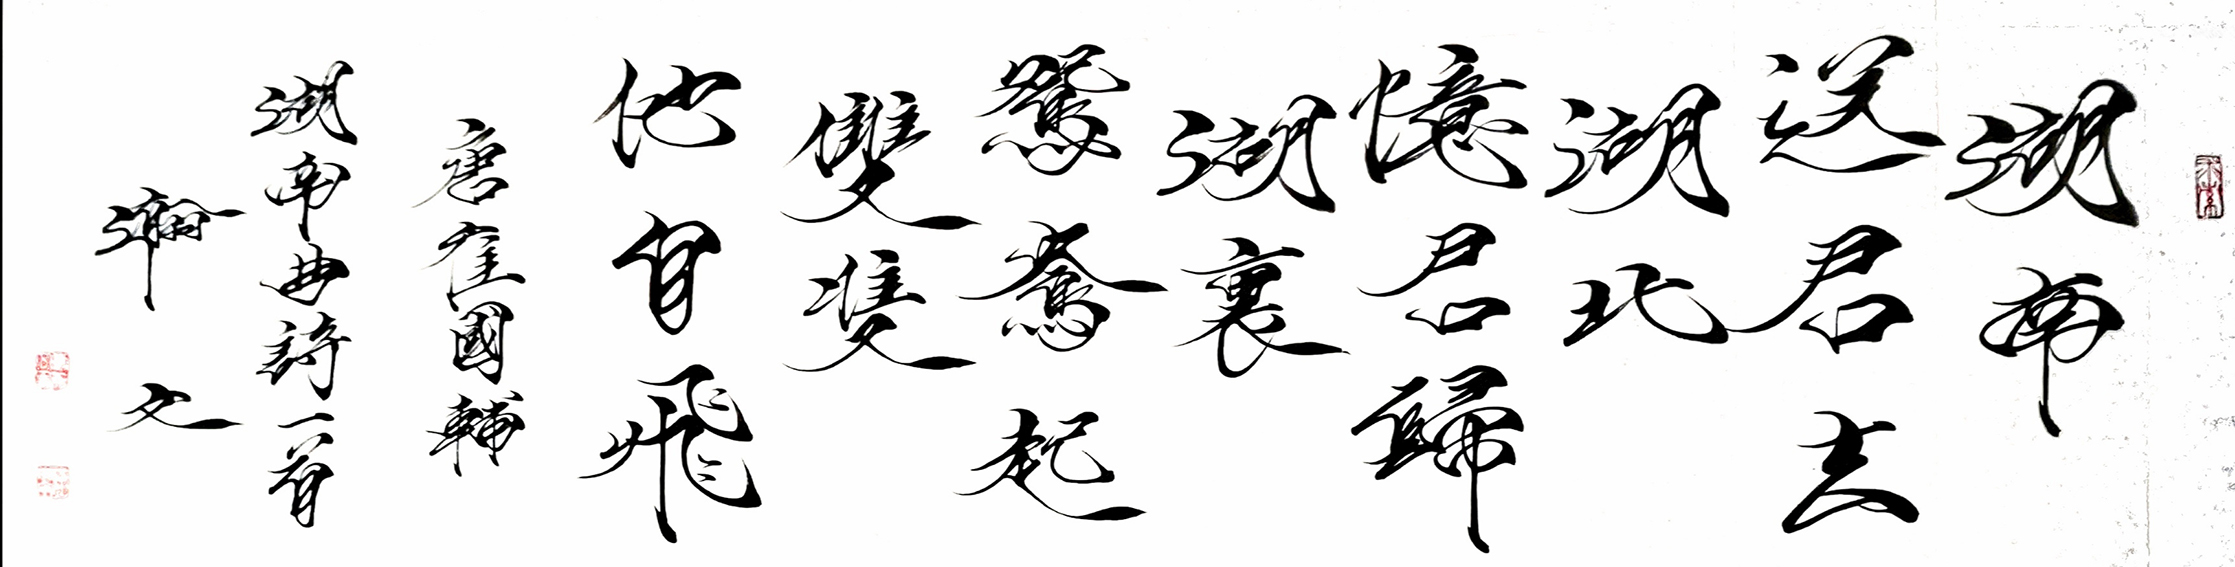 湖南
送君去
湖北
憶君歸
湖裏
鴛鴦起
雙雙
他自飛
唐崔國輔
湖南曲詩一首
瀚文